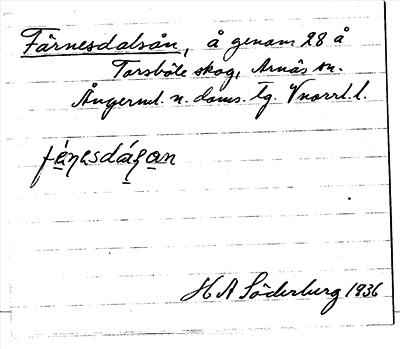 Färnesdalsån, å genom 28 å
Torsböle skog, Arnäs sn.
Ångerml. n. doms. tg. Vnorrl. l.
H A Söderberg 1936